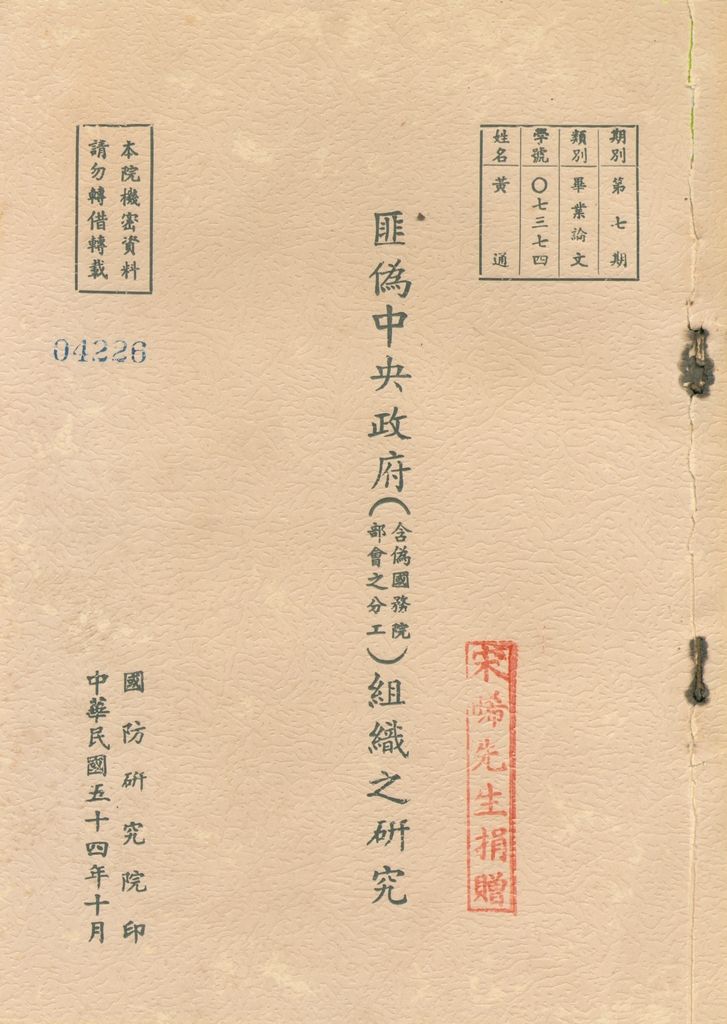 期別 第七期
類別 畢業論文
學號 〇七三七四
姓名 黃通
宋晞先生捐贈
匪偽中央政府(含偽國務院
部會之分工)組織之研究
本院機密資料
請勿轉借轉載
04226
國防研究院印
中華民國五十四年十月